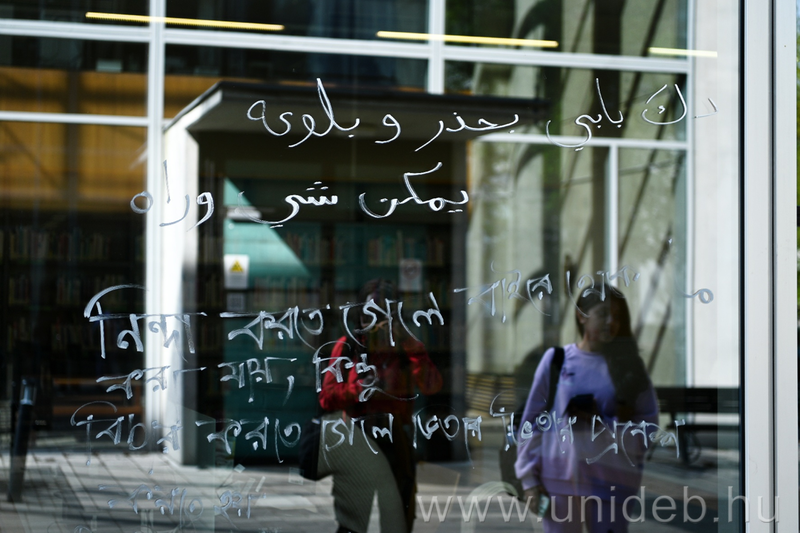 دك بابي بحذر و بلويه
يمكن شي وراه
নিন্দা করতে গেলে বাইরে থেকে
করা যায়, কিন্তু
বিচার করতে গেলে ভেতর
www.unideb.hu